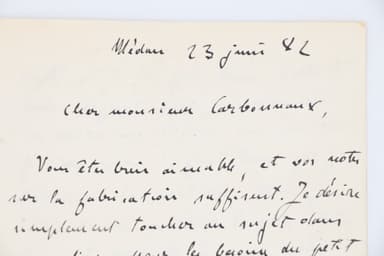 Médan 23 juin 82
Cher monsieur Carbonnaux,
Vous êtes bien aimable, et vos notes
sur la fabrication suffisent. Je désire
simplement toucher au sujet dans
pour le besoin du petit